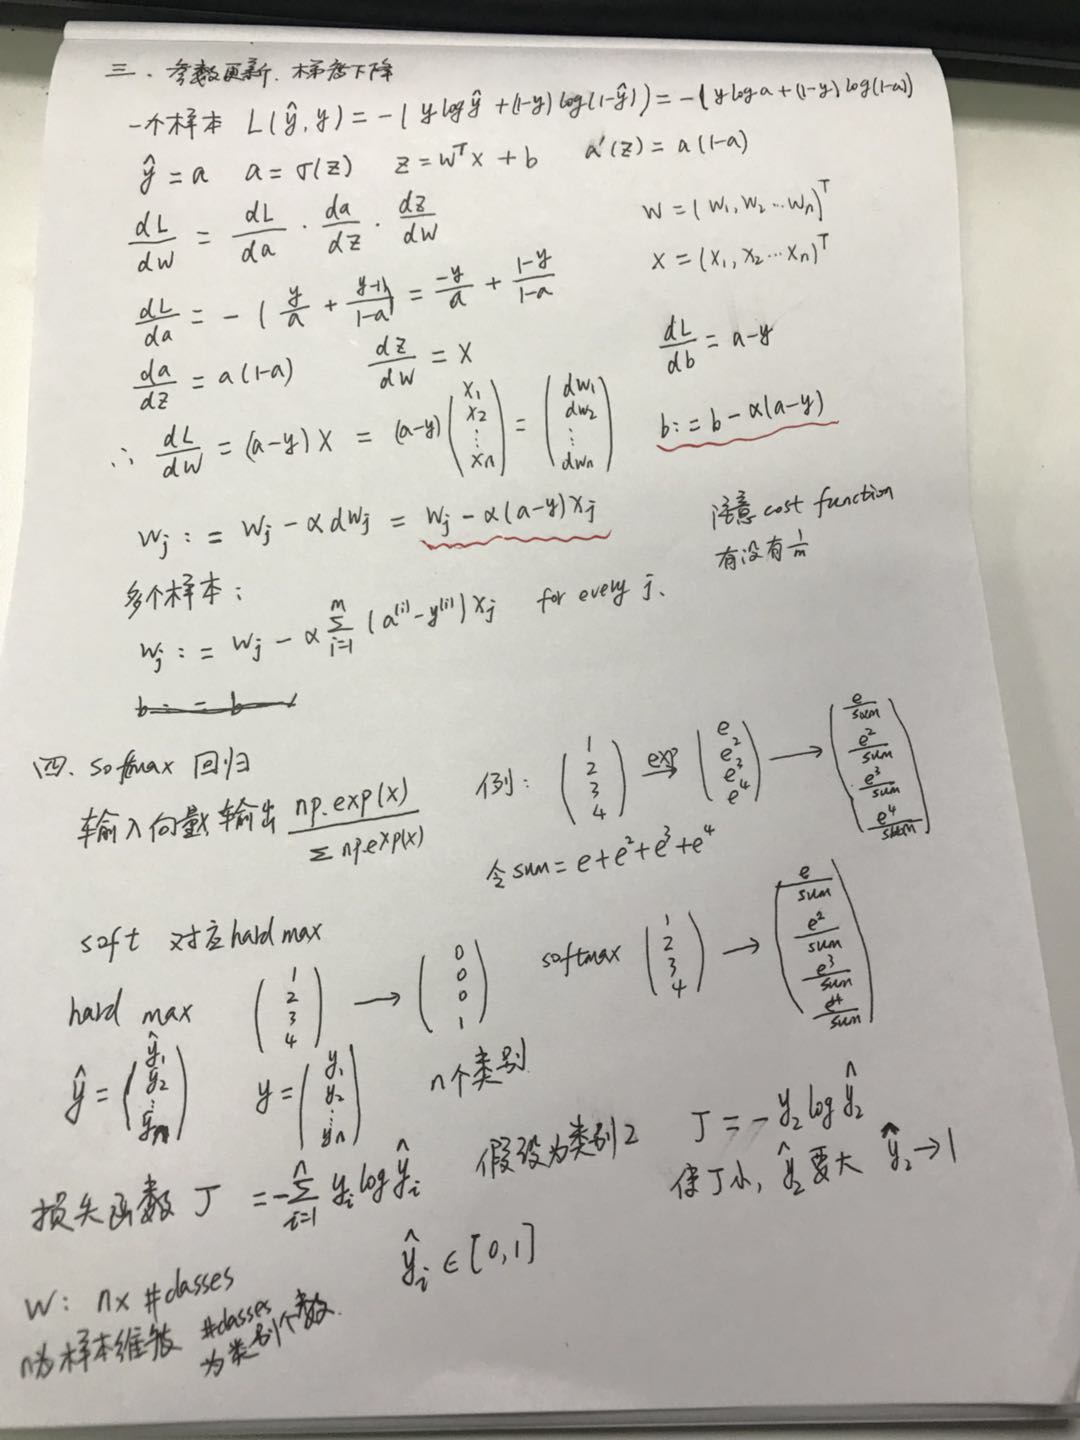 三、参数更新、梯度下降
一个样本 L(ŷ, y) = -(y log ŷ + (1-y) log(1-ŷ)) = -(y log a + (1-y) log(1-a))
ŷ = a a = σ(z) z = wᵀx + b a'(z) = a(1-a)
dL/dw = dL/da · da/dz · dz/dw
w = (w₁, w₂ ⋯ wn)ᵀ
x = (x₁, x₂ ⋯ xn)ᵀ
dL/da = -(y/a + (y-1)/(1-a)) = -y/a + (1-y)/(1-a)
da/dz = a(1-a) dz/dw = x
dL/db = a-y
∴ dL/dw = (a-y)x = (a-y)(x₁ x₂ ⋮ xn) = (dw₁ dw₂ ⋮ dwn)
b := b - α(a-y)
wj := wj - α dwj = wj - α(a-y)xj
注意 cost function
有没有 1/m
多个样本:
wj := wj - α Σ_{i=1}^{m} (a⁽ⁱ⁾ - y⁽ⁱ⁾)xj for every j.
b := b
四、softmax 回归
输入向量 输出 np.exp(x) / Σ np.exp(x)
例: (1 2 3 4) exp→ (e e² e³ e⁴) → (e/sum e²/sum e³/sum e⁴/sum)
令 sum = e + e² + e³ + e⁴
soft 对应 hard max
hard max (1 2 3 4) → (0 0 0 1)
softmax (1 2 3 4) → (e/sum e²/sum e³/sum e⁴/sum)
ŷ = (ŷ₁ y₂ ⋮ yn) y = (y₁ y₂ ⋮ yn) n个类别
损失函数 J = -Σ_{i=1}^{n} yi log ŷi
假设为类别2 J = -y₂ log ŷ₂
使J小, ŷ₂要大 ŷ₂→1
ŷi ∈ [0,1]
w: n× #classes
n为样本维数 #classes
为类别个数.